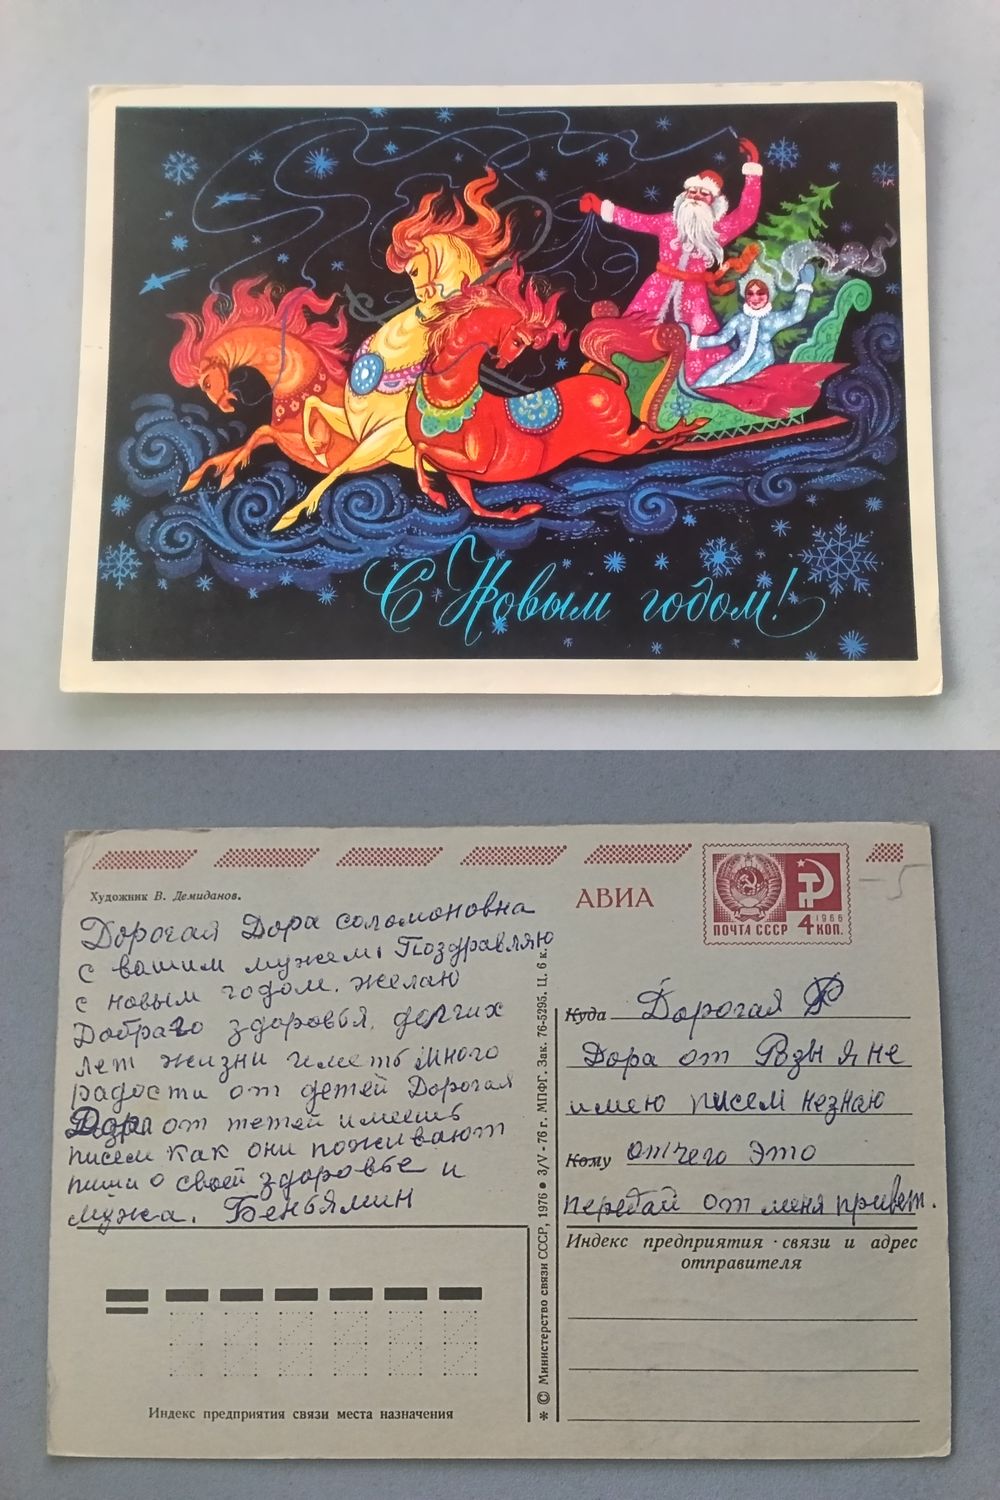 С Новым годом!
Художник В. Демиданов.
АВИА
1966
ПОЧТА СССР 4 КОП.
-5
Дорогая Дора соломоновна
с вашим мужем. Поздравляю
с новым годом. желаю
Добраго здоровья. долгих
лет жизни иметь много
радости от детей Дорогая
Дора от тетей имеешь
писем как они поживают
пиши о своей здоровье и
мужа. Беньямин
Куда Дорогая
Дора от Розы я не
имею писем незнаю
Кому отчего это
передай от меня привет.
Индекс предприятия связи и адрес
отправителя
Индекс предприятия связи места назначения
* © Министерство связи СССР, 1976 ● 3/V-76 г. МПФГ. Зак. 76-5295. Ц. 6 к.